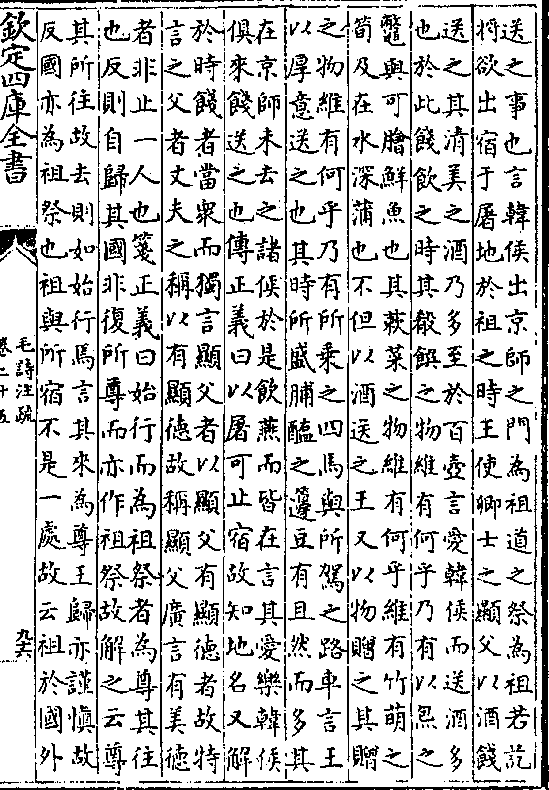 送之事也言韓侯出京師之門為祖道之祭為祖若訖
將欲出宿于屠地於祖之時王使卿士之顯父以酒餞
送之其清美之酒乃多至於百壺言愛韓侯而送酒多
也於此餞飲之時其殽饌之物維有何乎乃有以炰之
鼈與可膾鮮魚也其蔌菜之物維有何乎維有竹萌之
筍及在水深蒲也不但以酒送之王又以物贈之其贈
之物維有何乎乃有所乘之四馬與所駕之路車言王
以厚意送之也其時所盛脯醢之籩豆有且然而多其
在京師未去之諸侯於是飲燕而皆在言其愛樂韓侯
俱來餞送之也傳正義曰以屠可止宿故知地名又解
於時餞者當衆而獨言顯父者以顯父有顯德者故特
言之父者丈夫之稱以有顯德故稱顯父廣言有美德
者非止一人也箋正義曰始行而為祖祭者為尊其往
也反則自歸其國非復所尊而亦作祖祭故解之云尊
其所往故去則如始行焉言其來為尊王歸亦謹慎故
反國亦為祖祭也祖與所宿不是一處故云祖於國外
欽定四庫全書
毛詩注疏
卷二十五
九六